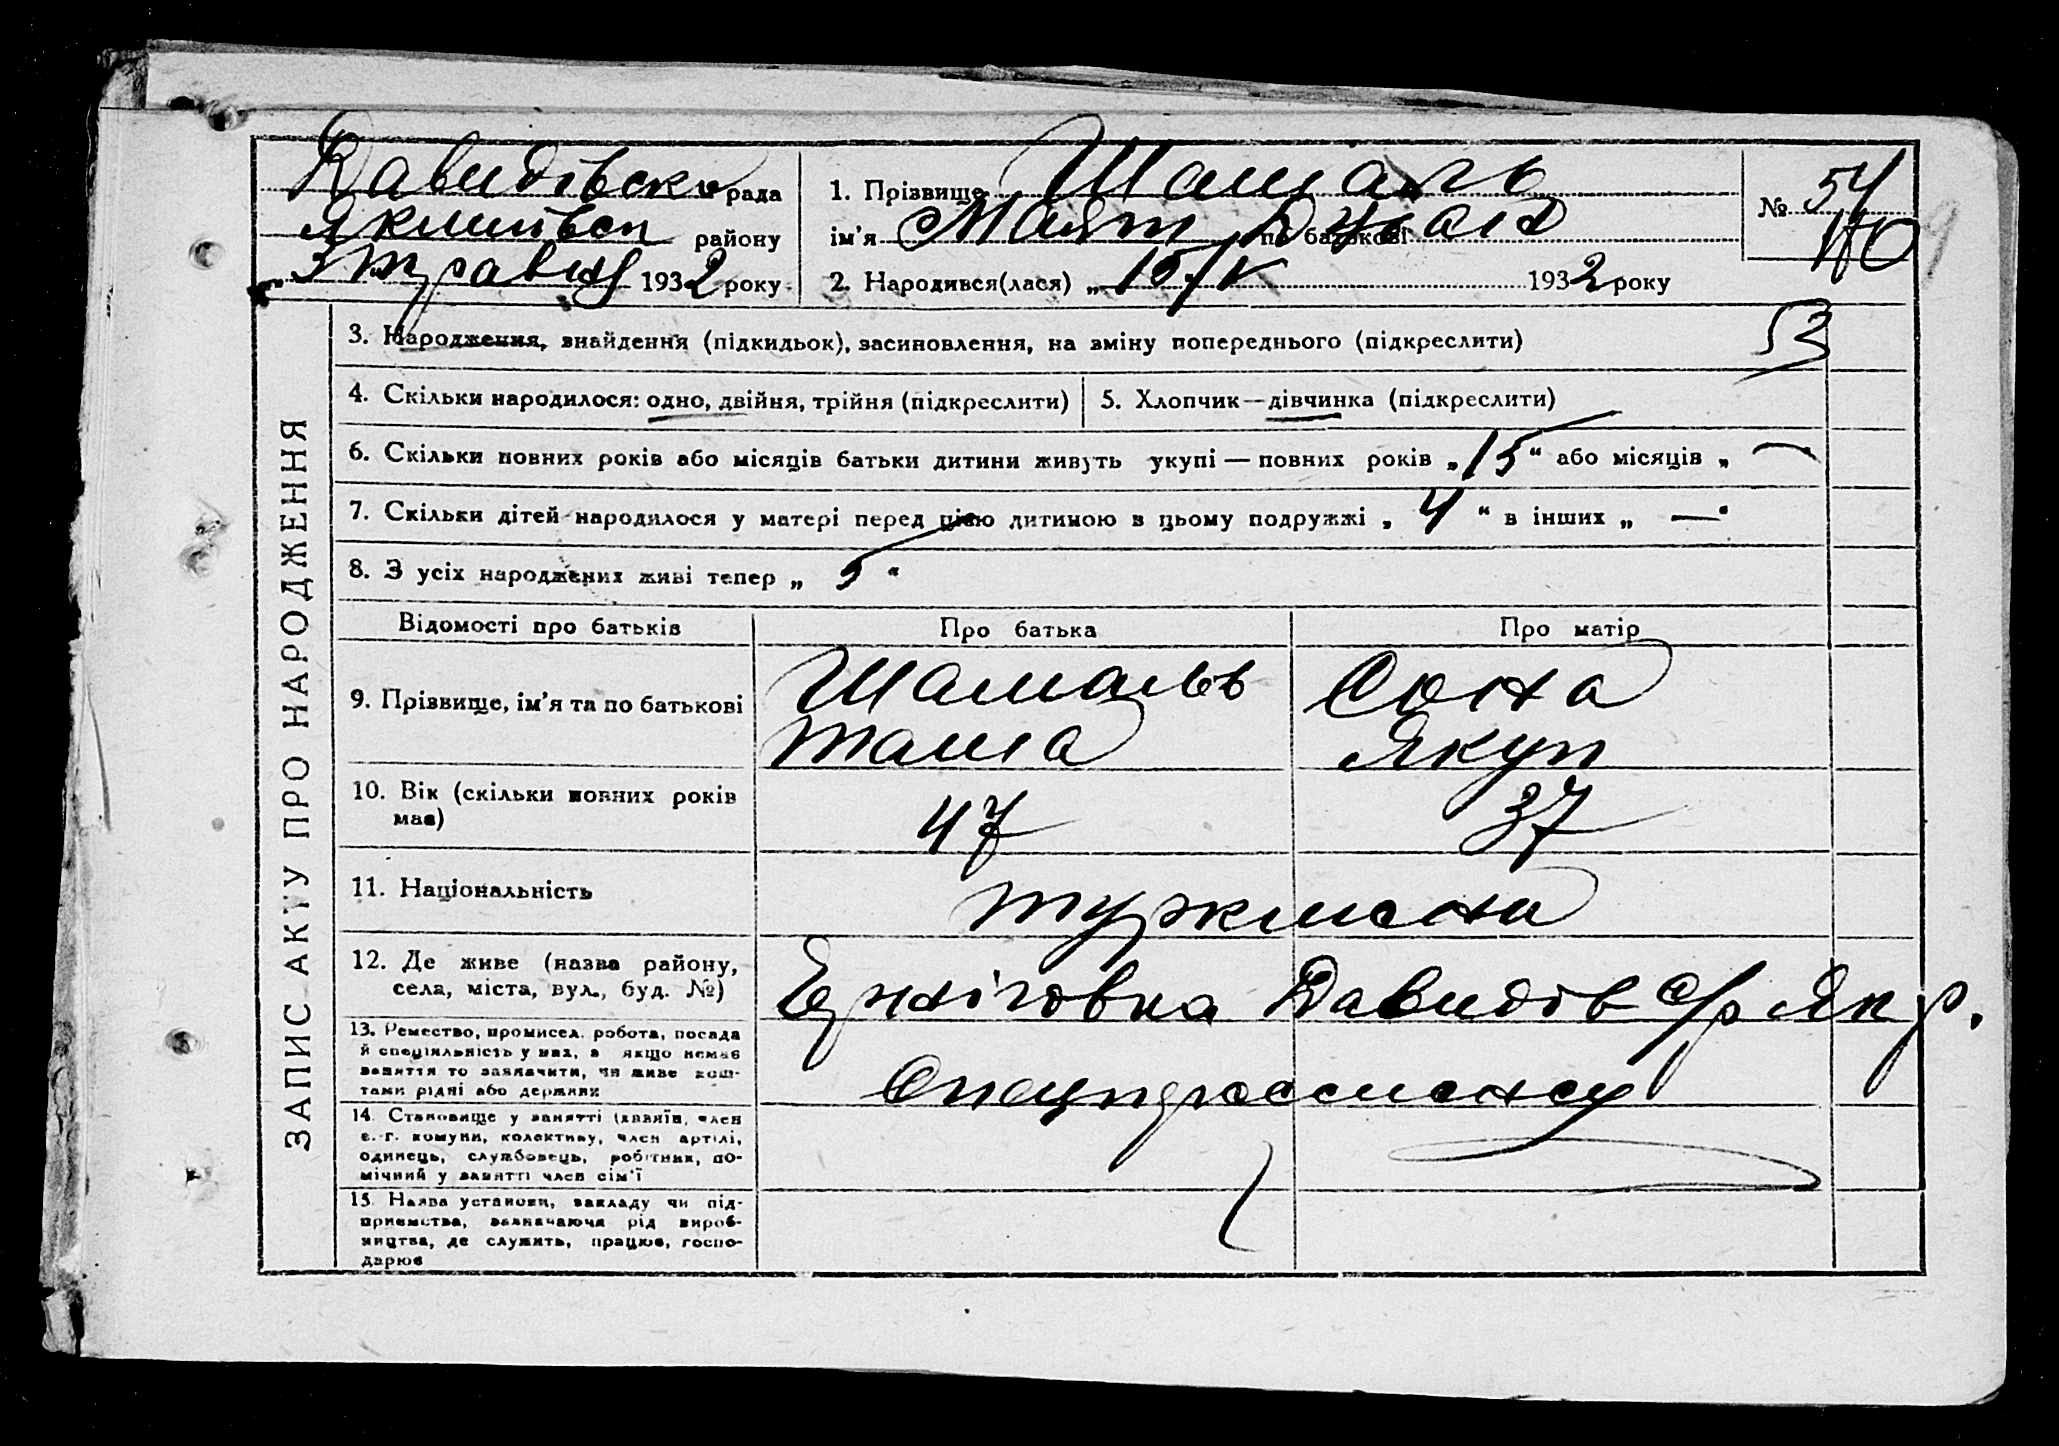 Давидівська рада
Якимівськ району
„3" травня 1932 року
1. Прізвище Шамаль
ім'я Маят по батькові
2. Народився(лася) „15/IV 1932 року
№ 54
170
53
ЗАПИС АКТУ ПРО НАРОДЖЕННЯ
3. Народження, знайдення (підкидьок), засиновлення, на зміну попереднього (підкреслити)
4. Скільки народилося: одно, двійня, трійня (підкреслити)
5. Хлопчик—дівчинка (підкреслити)
6. Скільки повних років або місяців батьки дитини живуть укупі — повних років „15" або місяців „—
7. Скільки дітей народилося у матері перед цією дитиною в цьому подружжі „4" в інших „—"
8. З усіх народжених живі тепер „5"
Відомості про батьків Про батька Про матір
9. Прізвище, ім'я та по батькові
Шамаль Сона
Якуп
10. Вік (скільки повних років має) 47 37
11. Національність туркмени
12. Де живе (назва району, села, міста, вул., буд. №)
Давидів с/р Як р.
13. Ремество, промисел, робота, посада й спеціяльність у них, а якщо немає заняття то зазначити, чи живе коштами рідні або держави
14. Становище у занятті (хазяїн, член с.-г. комуни, колективу, член артілі, одинець, службовець, робітник, помічний у занятті член сім'ї
15. Назва установи, закладу чи підприємства, зазначаючи рід виробництва, де служить, працює, господарює